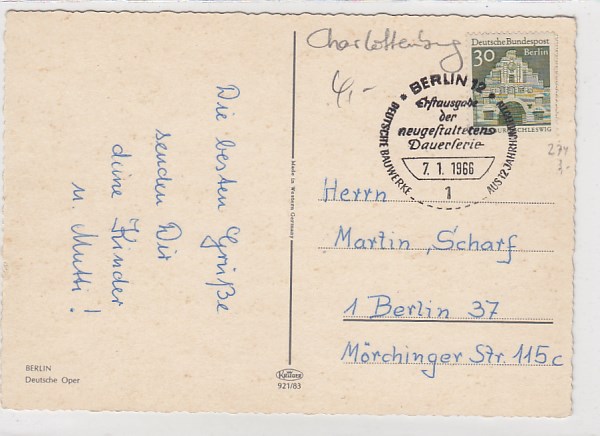 Charlottenburg
4,-
Die besten Grüße
senden Dir
deine Kinder
u. Mutti!
BERLIN
Deutsche Oper
Made in Western Germany
Krüger
921/83
Deutsche Bundespost
30 Berlin
SCHLESWIG
BERLIN 12
DEUTSCHE BAUWERKE AUS 12 JAHRHUNDERTEN
Erstausgabe
der
neugestalteten
Dauerserie
7. 1. 1966
1
274
3.-
Herrn
Martin Scharf
1 Berlin 37
Mörchinger Str. 115c